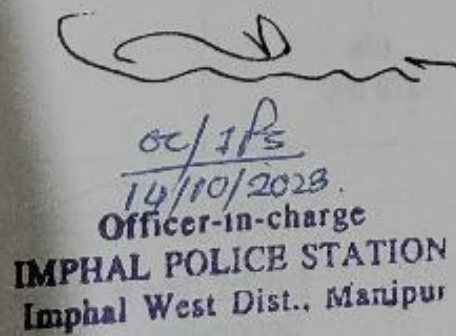 OC/IPS
14/10/2023.
Officer-in-charge
IMPHAL POLICE STATION
Imphal West Dist., Manipur